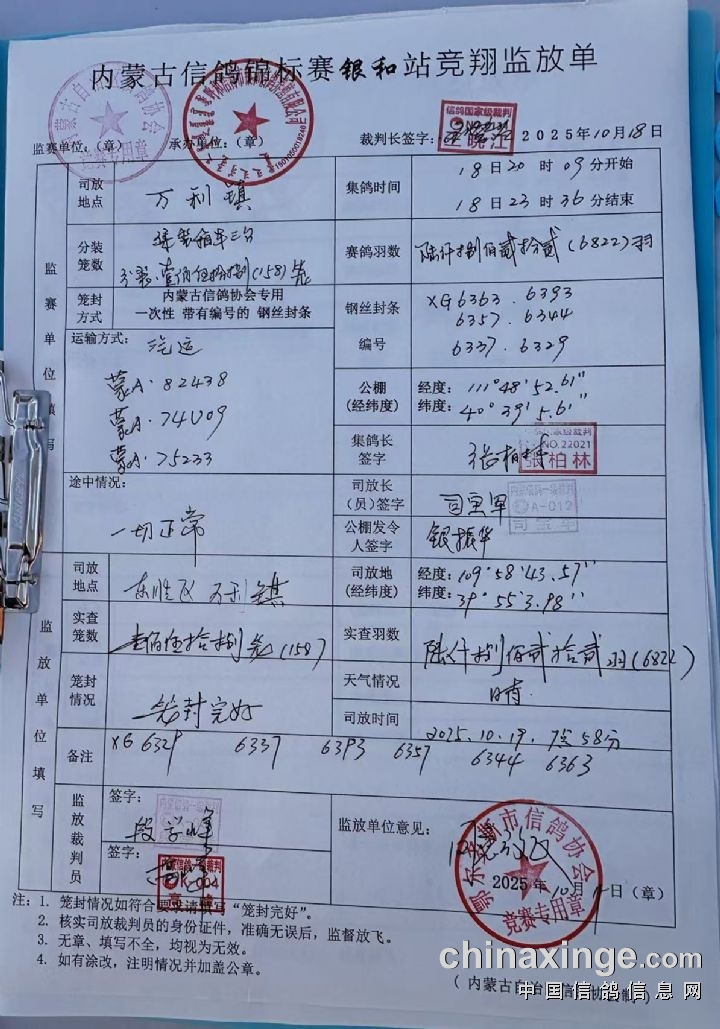 内蒙古信鸽锦标赛银和站竞翔监放单
监赛单位:(章) 承办单位:(章) 裁判长签字: 2025年10月18日
信鸽国家级裁判
监赛单位填写
司放地点 万利镇
集鸽时间 18日20时09分开始
18日23时36分结束
分装笼数
分装:壹佰伍拾捌(158)笼
赛鸽羽数 陆仟捌佰贰拾贰(6822)羽
笼封方式 内蒙古信鸽协会专用
一次性 带有编号的 钢丝封条
钢丝封条编号 XG 6363. 6393
6357. 6344
6337. 6329
运输方式: 汽运
蒙A·82438
蒙A·74U09
蒙A·75233
公棚(经纬度) 经度: 111°48'52.61"
纬度: 40°39'5.61"
集鸽长签字 张柏林
NO.22021
张柏林
途中情况:
一切正常
司放长(员)签字 司宝军
A-012
司宝军
公棚发令人签字 银振华
监放单位填写
司放地点 东胜区万利镇
司放地(经纬度) 经度: 109°58'43.57"
纬度: 39°55'3.98"
实查笼数 壹佰伍拾捌笼(158)
实查羽数 陆仟捌佰贰拾贰羽(6822)
笼封情况 笼封完好
天气情况 晴
司放时间 2025.10.19.7点58分
备注 XG 6329 6337 6393 6357 6344 6363
监放裁判员
签字: 段学峰
签字:
监放单位意见:
鄂尔多斯市信鸽协会
2025年10月19日(章)
竞赛专用章
注: 1. 笼封情况如符合要求请填写“笼封完好”。
2. 核实司放裁判员的身份证件,准确无误后,监督放飞。
3. 无章、填写不全,均视为无效。
4. 如有涂改,注明情况并加盖公章。
(内蒙古自治区信鸽协会制)
chinaxinge.com
中国信鸽信息网